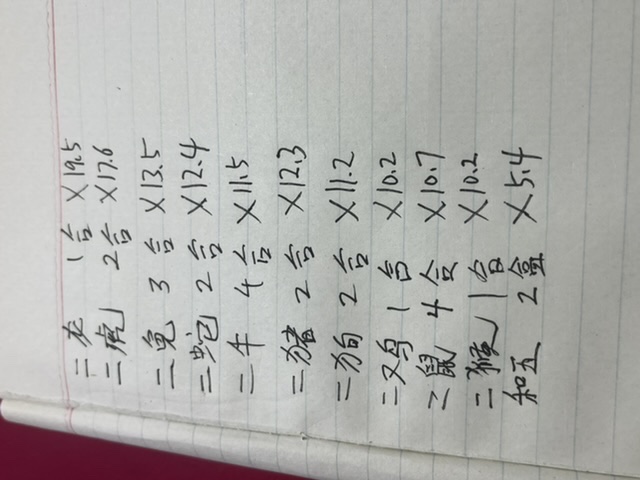 二龙 1台 X19.5
二虎 2台 X17.6
二兔 3台 X13.5
二蛇 2台 X12.4
二牛 4台 X11.5
二猪 2台 X12.3
二狗 2台 X11.2
二鸡 1台 X10.2
二鼠 4台 X10.7
二猴 1台 X10.2
和五 2盒 X5.4